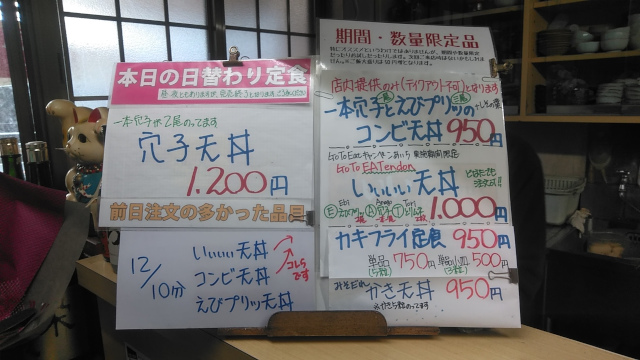 本日の日替わり定食
一本穴子が2尾のってます
穴子天丼
1,200円
前日注文の多かった品目
12/10分
いいいい天丼
コンビ天丼
えびプリッツ天丼
コレらです
期間・数量限定品
店内提供のみ(テイクアウト不可)となります
一本穴子とえびプリッツの
コンビ天丼 950円
GoToEatキャンペーンあいち 実施期間限定
GoToEATendon
いいいい天丼 1,000円
カキフライ定食 950円
単品(5粒) 750円 単品小皿(3粒) 500円
みそだれ かき天丼 950円